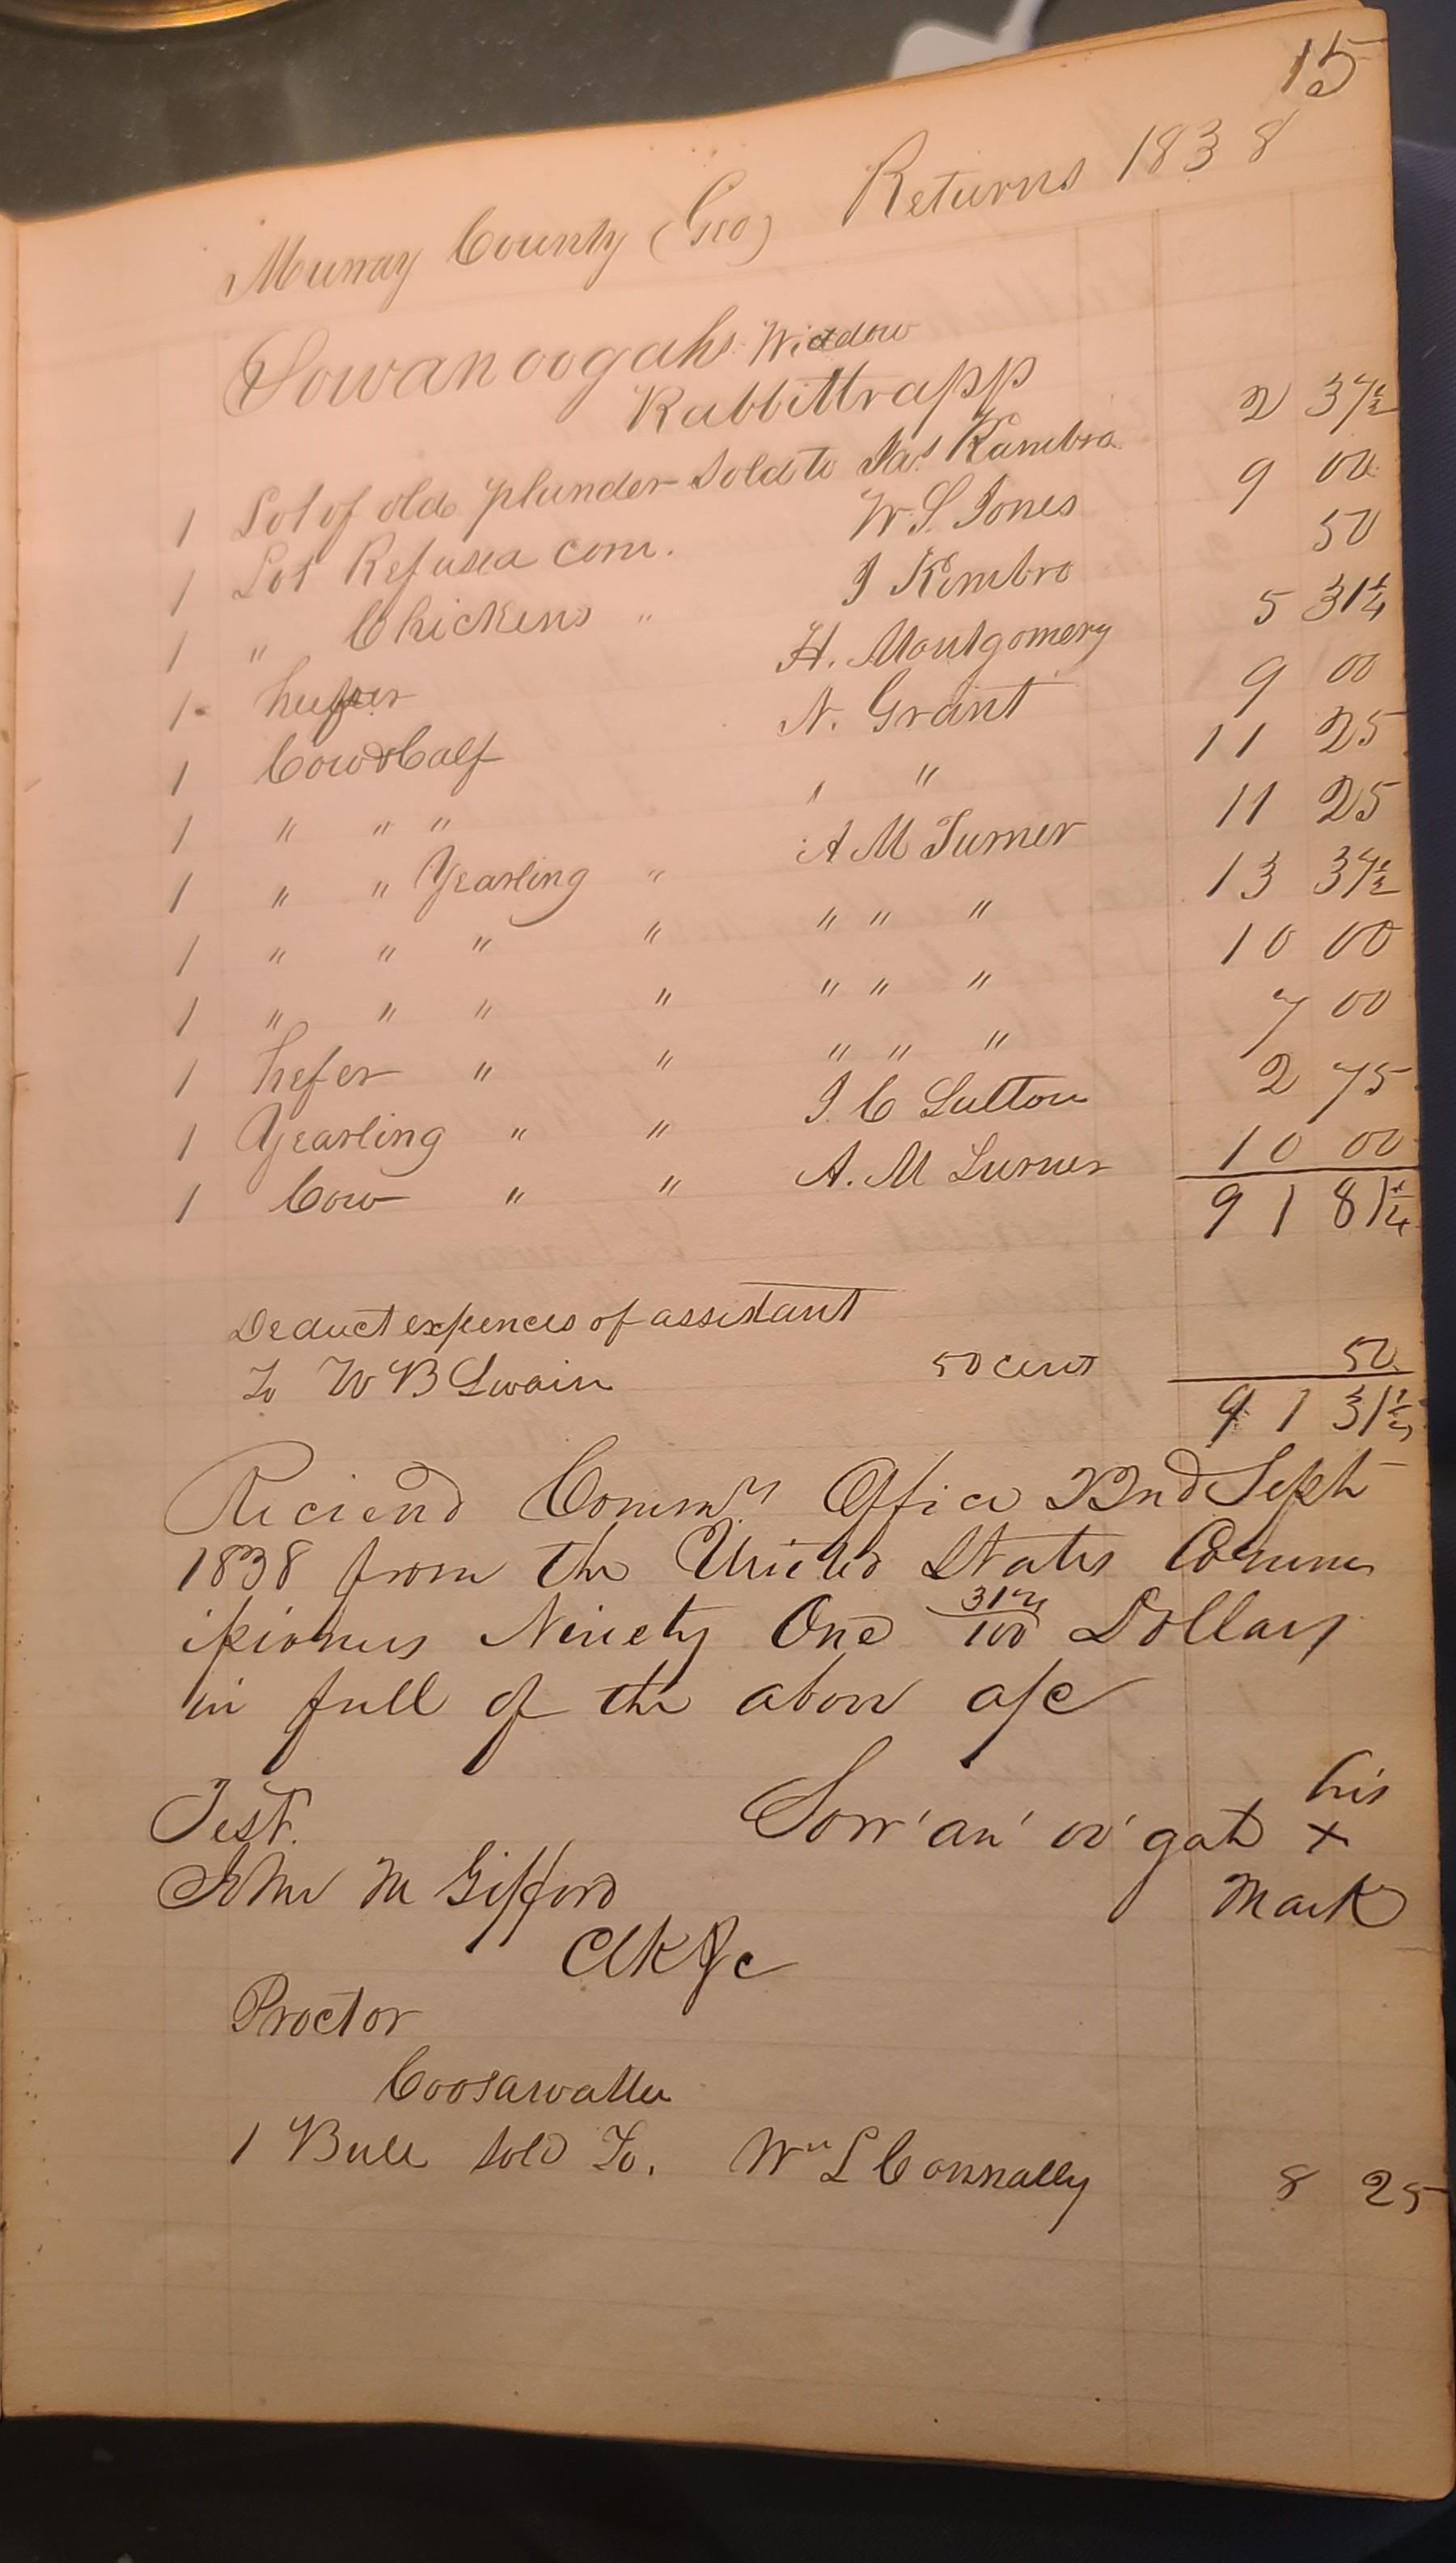 15
Murray County (Geo) Returns 1838
Sowanoogahs Widdow
Rabbittrapp
1 Lot of old plunder sold to Jas Kimbro 2 37½
1 Lot Refused corn. W. S. Jones 9 00
1 " Chickens " J Kimbro 50
1 heifer H. Montgomery 5 31¼
1 Cow & Calf N. Grant 9 00
1 " " " " " 11 25
1 " " Yearling " A M Turner 11 25
1 " " " " " " " 13 37½
1 " " " " " " " 10 00
1 hefer " " " " " 7 00
1 Yearling " " J. C Sutton 2 75
1 Cow " " A. M Turner 10 00
91 81¼
Deduct expences of assistant
To W B Swain 50 cent 50
91 31¼
Reciend Commrs Office 22nd Sept
1838 from the United States Comm
issioners Ninety One 31¼/100 Dollars
in full of the above a/c
Test. Sow'an'oo'gah his x
John M Gifford mark
Clk &c
Proctor
Coosawattee
1 Bull sold To. Wm L Connally 8 25